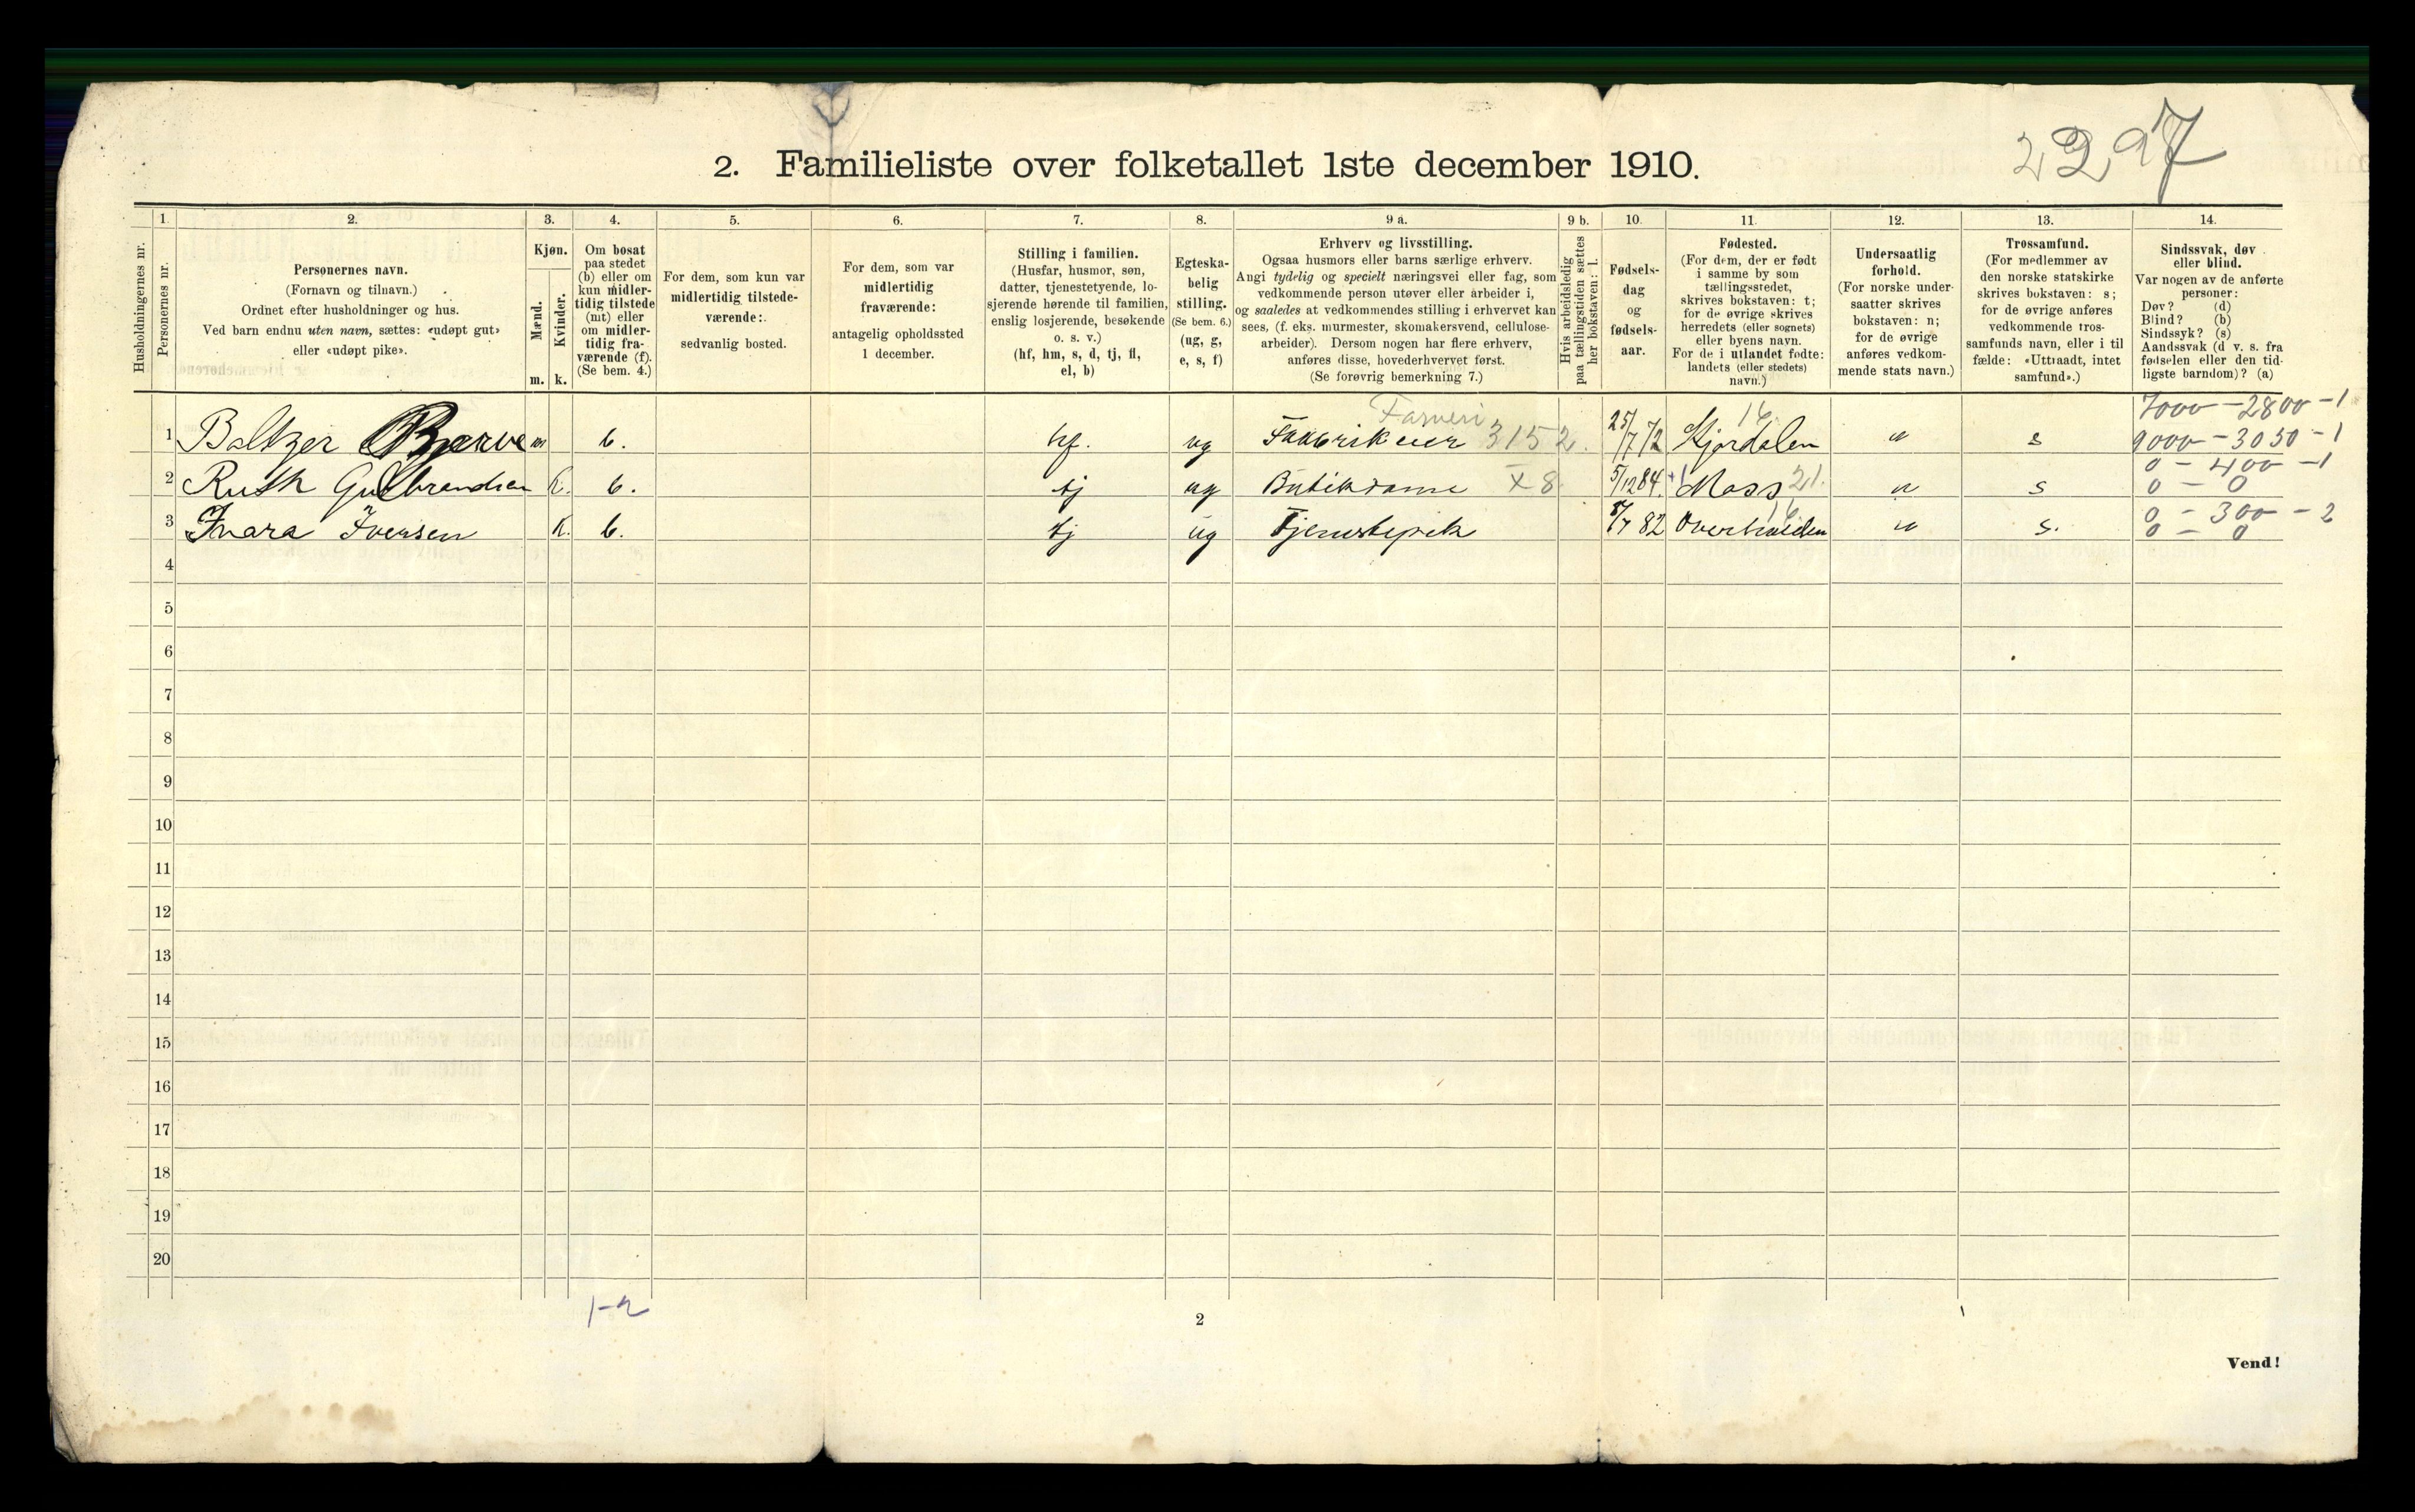 2297
2. Familieliste over folketallet 1ste december 1910.
Husholdningernes nr.
1.
Personernes nr.
2.
Personernes navn.
(Fornavn og tilnavn.)
Ordnet efter husholdninger og hus.
Ved barn endnu uten navn, sættes: «udøpt gut»
eller «udøpt pike».
3.
Kjøn.
Mænd.
Kvinder.
m. k.
4.
Om bosat
paa stedet
(b) eller om
kun midler-
tidig tilstede
(mt) eller
om midler-
tidig fra-
værende (f).
(Se bem. 4.)
5.
For dem, som kun var
midlertidig tilstede-
værende:
sedvanlig bosted.
6.
For dem, som var
midlertidig
fraværende:
antagelig opholdssted
1 december.
7.
Stilling i familien.
(Husfar, husmor, søn,
datter, tjenestetyende, lo-
sjerende hørende til familien,
enslig losjerende, besøkende
o. s. v.)
(hf, hm, s, d, tj, fl,
el, b)
8.
Egteska-
belig
stilling.
(Se bem. 6.)
(ug, g,
e, s, f)
9 a.
Erhverv og livsstilling.
Ogsaa husmors eller barns særlige erhverv.
Angi tydelig og specielt næringsvei eller fag, som
vedkommende person utøver eller arbeider i,
og saaledes at vedkommendes stilling i erhvervet kan
sees, (f. eks. murmester, skomakersvend, cellulose-
arbeider). Dersom nogen har flere erhverv,
anføres disse, hovederhvervet først.
(Se forøvrig bemerkning 7.)
9 b.
Hvis arbeidsledig
paa tællingstiden sættes
her bokstaven: l.
10.
Fødsels-
dag
og
fødsels-
aar.
11.
Fødested.
(For dem, der er født
i samme by som
tællingsstedet,
skrives bokstaven: t;
for de øvrige skrives
herredets (eller sognets)
eller byens navn.
For de i utlandet fødte:
landets (eller stedets)
navn.)
12.
Undersaatlig
forhold.
(For norske under-
saatter skrives
bokstaven: n;
for de øvrige
anføres vedkom-
mende stats navn.)
13.
Trossamfund.
(For medlemmer av
den norske statskirke
skrives bokstaven: s;
for de øvrige anføres
vedkommende tros-
samfunds navn, eller i til
fælde: «Uttraadt, intet
samfund».)
14.
Sindssvak, døv
eller blind.
Var nogen av de anførte
personer:
Døv? (d)
Blind? (b)
Sindssyk? (s)
Aandssvak (d v. s. fra
fødselen eller den tid-
ligste barndom)? (a)
Farveri 16 7000 - 2800 - 1
1 Baltzer m b. hf. ug Fabrikeier 3152. 25/7 72 Stjørdalen n s 9000 - 3050 - 1
0 - 400 - 1
2 Ruth Gulbrandsen k. b. tj ug Butikdame X 8 5/12 84. Moss 21. n s 0 - 0
16 0 - 300 - 2
3 Iversen K. b. tj ug Tjenestepik /7 82 Overhalden n s. 0 - 0
4
5
6
7
8
9
10
11
12
13
14
15
16
17
18
19
20
1-2
2
Vend!